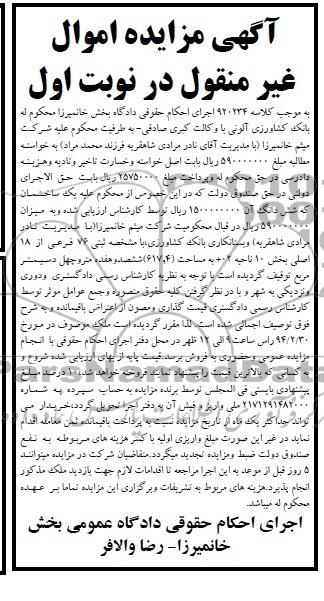 آگهی مزایده اموال
غیر منقول در نوبت اول
به موجب کلاسه ۹۲۰۲۳۴ اجرای احکام حقوقی دادگاه بخش خانمیرزا محکوم له
بانک کشاورزی آلونی با وکالت کبری صادقی- به طرفیت محکوم علیه شرکت
میثم خانمیرزا (با مدیریت آقای نادر مرادی شاهقریه فرزند محمد مراد) به خواسته
مطالبه مبلغ ۵۹۰۰۰۰۰۰۰ ریال بابت اصل خواسته وخسارت تاخیر وتادیه وهزینه
دادرسی در حق محکوم له وپرداخت مبلغ ۲۵۷۵۰۰۰۰ ریال بابت حق الاجرای
دولتی در حق صندوق دولت که در این خصوص از محکوم علیه یک ساختمان
که شش دانگ آن ۱۵۰۰۰۰۰۰۰۰ ریال توسط کارشناس ارزیابی شده وبه میزان
۵۹۰۰۰۰۰۰۰ ریال در قبال محکومیت شرکت میثم خانمیرزا(با مدیریت نادر
مرادی شاهقریه) وبستانکاری بانک کشاورزی،با مشخصه ثبتی ۷۶ فرعی از ۱۸
اصلی بخش ۱۰ ناحیه ۰۲ به مساحت (۶۱۷٫۴)ششصدوهفده متروچهل دسیمتر
مربع توقیف گردیده است با توجه به نظریه کارشناس رسمی دادگستری ودوری
ونزدیکی به شهر و با در نظر گرفتن کلیه حقوق متصوره وجمع عوامل موثر توسط
کارشناس رسمی دادگستری قیمت گذاری ومصون از اعتراض باقیمانده و به شرح
فوق توصیف اجمالی شده است. لذا مقرر گردیده است ملک موصوف در مورخ
۹۴/۲/۳۰ راس ساعت ۹ الی ۱۲ ظهر در محل دفتر اجرای احکام حقوقی با انجام
مزایده عمومی وحضوری به فروش برسد.قیمت پایه از بهای ارزیابی شده شروع و
به کسانی که بالاترین قیمت را پیشنهاد نمایند فروخته خواهد شد،۱۰ درصد مبلغ
پیشنهادی بایستی فی المجلس توسط برنده مزایده به حساب سپرده به شماره
۲۱۷۱۲۹۱۴۸۲۰۰۰ ملی واریز و فیش آن به دفتر اجرا تحویل گردد،خریدار می
تواند حداکثر یک ماه از تاریخ مزایده نسبت به پرداخت باقیمانده ثمن معامله اقدام
نماید در غیر این صورت مبلغ واریزی اولیه با کسر هزینه های مربوطه به نفع
صندوق دولت ضبط ومزایده تجدید میگردد.متقاضیان شرکت در مزایده میتوانند
۵ روز قبل از موعد به این اجرا مراجعه تا اقدامات لازم جهت بازدید ملک مذکور
انجام پذیرد.هزینه های مربوط به تشریفات وبرگزاری این مزایده تماما بر عهده
محکوم له میباشد.
اجرای احکام حقوقی دادگاه عمومی بخش
خانمیرزا- رضا والافر